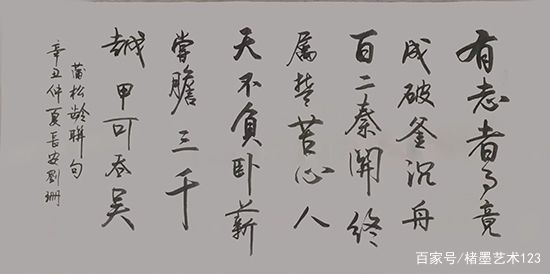 有志者事竟
成破釜沉舟
百二秦關終
屬楚苦心人
天不負卧薪
嘗膽三千
越甲可吞吴
蒲松龄聯句
辛丑仲夏長安劉珊
百家号/楮墨艺术123